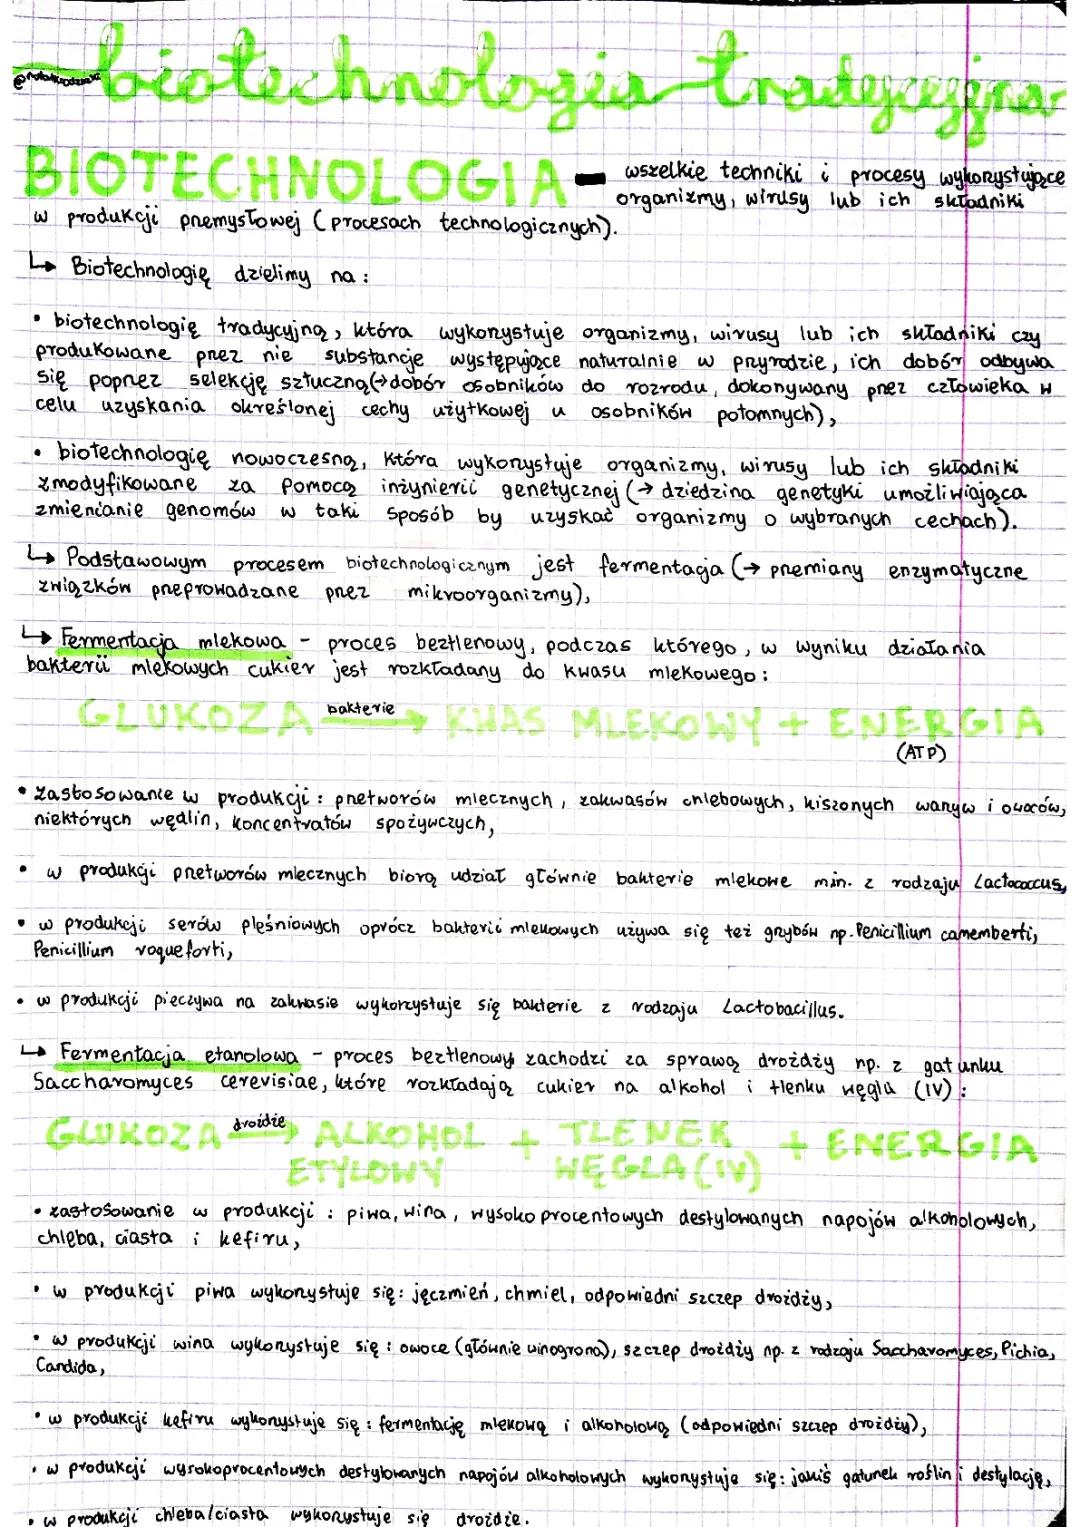 biotechnologia tradycyjna
BIOTECHNOLOGIA - wszelkie techniki i procesy wykorzystujące
organizmy, wirusy lub ich składniki
w produkcji przemysłowej (procesach technologicznych).
↳ Biotechnologię dzielimy na:
• biotechnologię tradycyjną, która wykorzystuje organizmy, wirusy lub ich składniki czy
produkowane przez nie substancje występujące naturalnie w przyrodzie, ich dobór odbywa
się poprzez selekcję sztuczną (→ dobór osobników do rozrodu, dokonywany przez człowieka w
celu uzyskania określonej cechy użytkowej u osobników potomnych),
• biotechnologię nowoczesną, która wykorzystuje organizmy, wirusy lub ich składniki
zmodyfikowane za pomocą inżynierii genetycznej (→ dziedzina genetyki umożliwiająca
zmienianie genomów w taki sposób by uzyskać organizmy o wybranych cechach).
↳ Podstawowym procesem biotechnologicznym jest fermentacja (→ przemiany enzymatyczne
związków przeprowadzane przez mikroorganizmy),
↳ Fermentacja mlekowa - proces beztlenowy, podczas którego, w wyniku działania
bakterii mlekowych cukier jest rozkładany do kwasu mlekowego:
GLUKOZA bakterie → KWAS MLEKOWY + ENERGIA
(ATP)
• zastosowanie w produkcji: przetworów mlecznych, zakwasów chlebowych, kiszonych warzyw i owoców,
niektórych wędlin, koncentratów spożywczych,
• w produkcji przetworów mlecznych biorą udział głównie bakterie mlekowe min. z rodzaju Lactococcus,
• w produkcji serów pleśniowych oprócz bakterii mlekowych używa się też grzybów np. Penicillium camemberti,
Penicillium roqueforti,
• w produkcji pieczywa na zakwasie wykorzystuje się bakterie z rodzaju Lactobacillus.
↳ Fermentacja etanolowa - proces beztlenowy zachodzi za sprawą drożdży np. z gatunku
Saccharomyces cerevisiae, które rozkładają cukier na alkohol i tlenku węgla (IV):
GLUKOZA drożdże → ALKOHOL + TLENEK + ENERGIA
ETYLOWY WĘGLA (IV)
• zastosowanie w produkcji: piwa, wina, wysokoprocentowych destylowanych napojów alkoholowych,
chleba, ciasta i kefiru,
• w produkcji piwa wykorzystuje się: jęczmień, chmiel, odpowiedni szczep drożdży,
• w produkcji wina wykorzystuje się: owoce (głównie winogrona), szczep drożdży np. z rodzaju Saccharomyces, Pichia,
Candida,
• w produkcji kefiru wykorzystuje się: fermentację mlekową i alkoholową (odpowiedni szczep drożdży),
• w produkcji wysokoprocentowych destylowanych napojów alkoholowych wykorzystuje się: jakiś gatunek roślin i destylację,
• w produkcji chleba/ciasta wykorzystuje się drożdże.